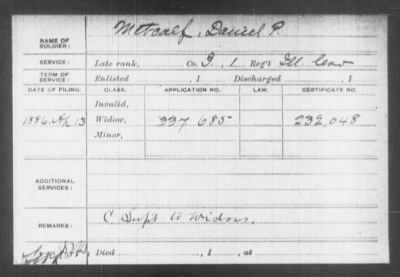 NAME OF SOLDIER: Metcalf, Daniel P.
SERVICE: Late rank, Co. I, 1 Reg't Ill Cav
TERM OF SERVICE: Enlisted , 1 Discharged , 1
DATE OF FILING. CLASS. APPLICATION NO. LAW. CERTIFICATE NO.
Invalid,
1886 Ap 13 Widow, 337.685 232.048
Minor,
ADDITIONAL SERVICES:
REMARKS: C Dup't to Widow.
Died , 1 , at